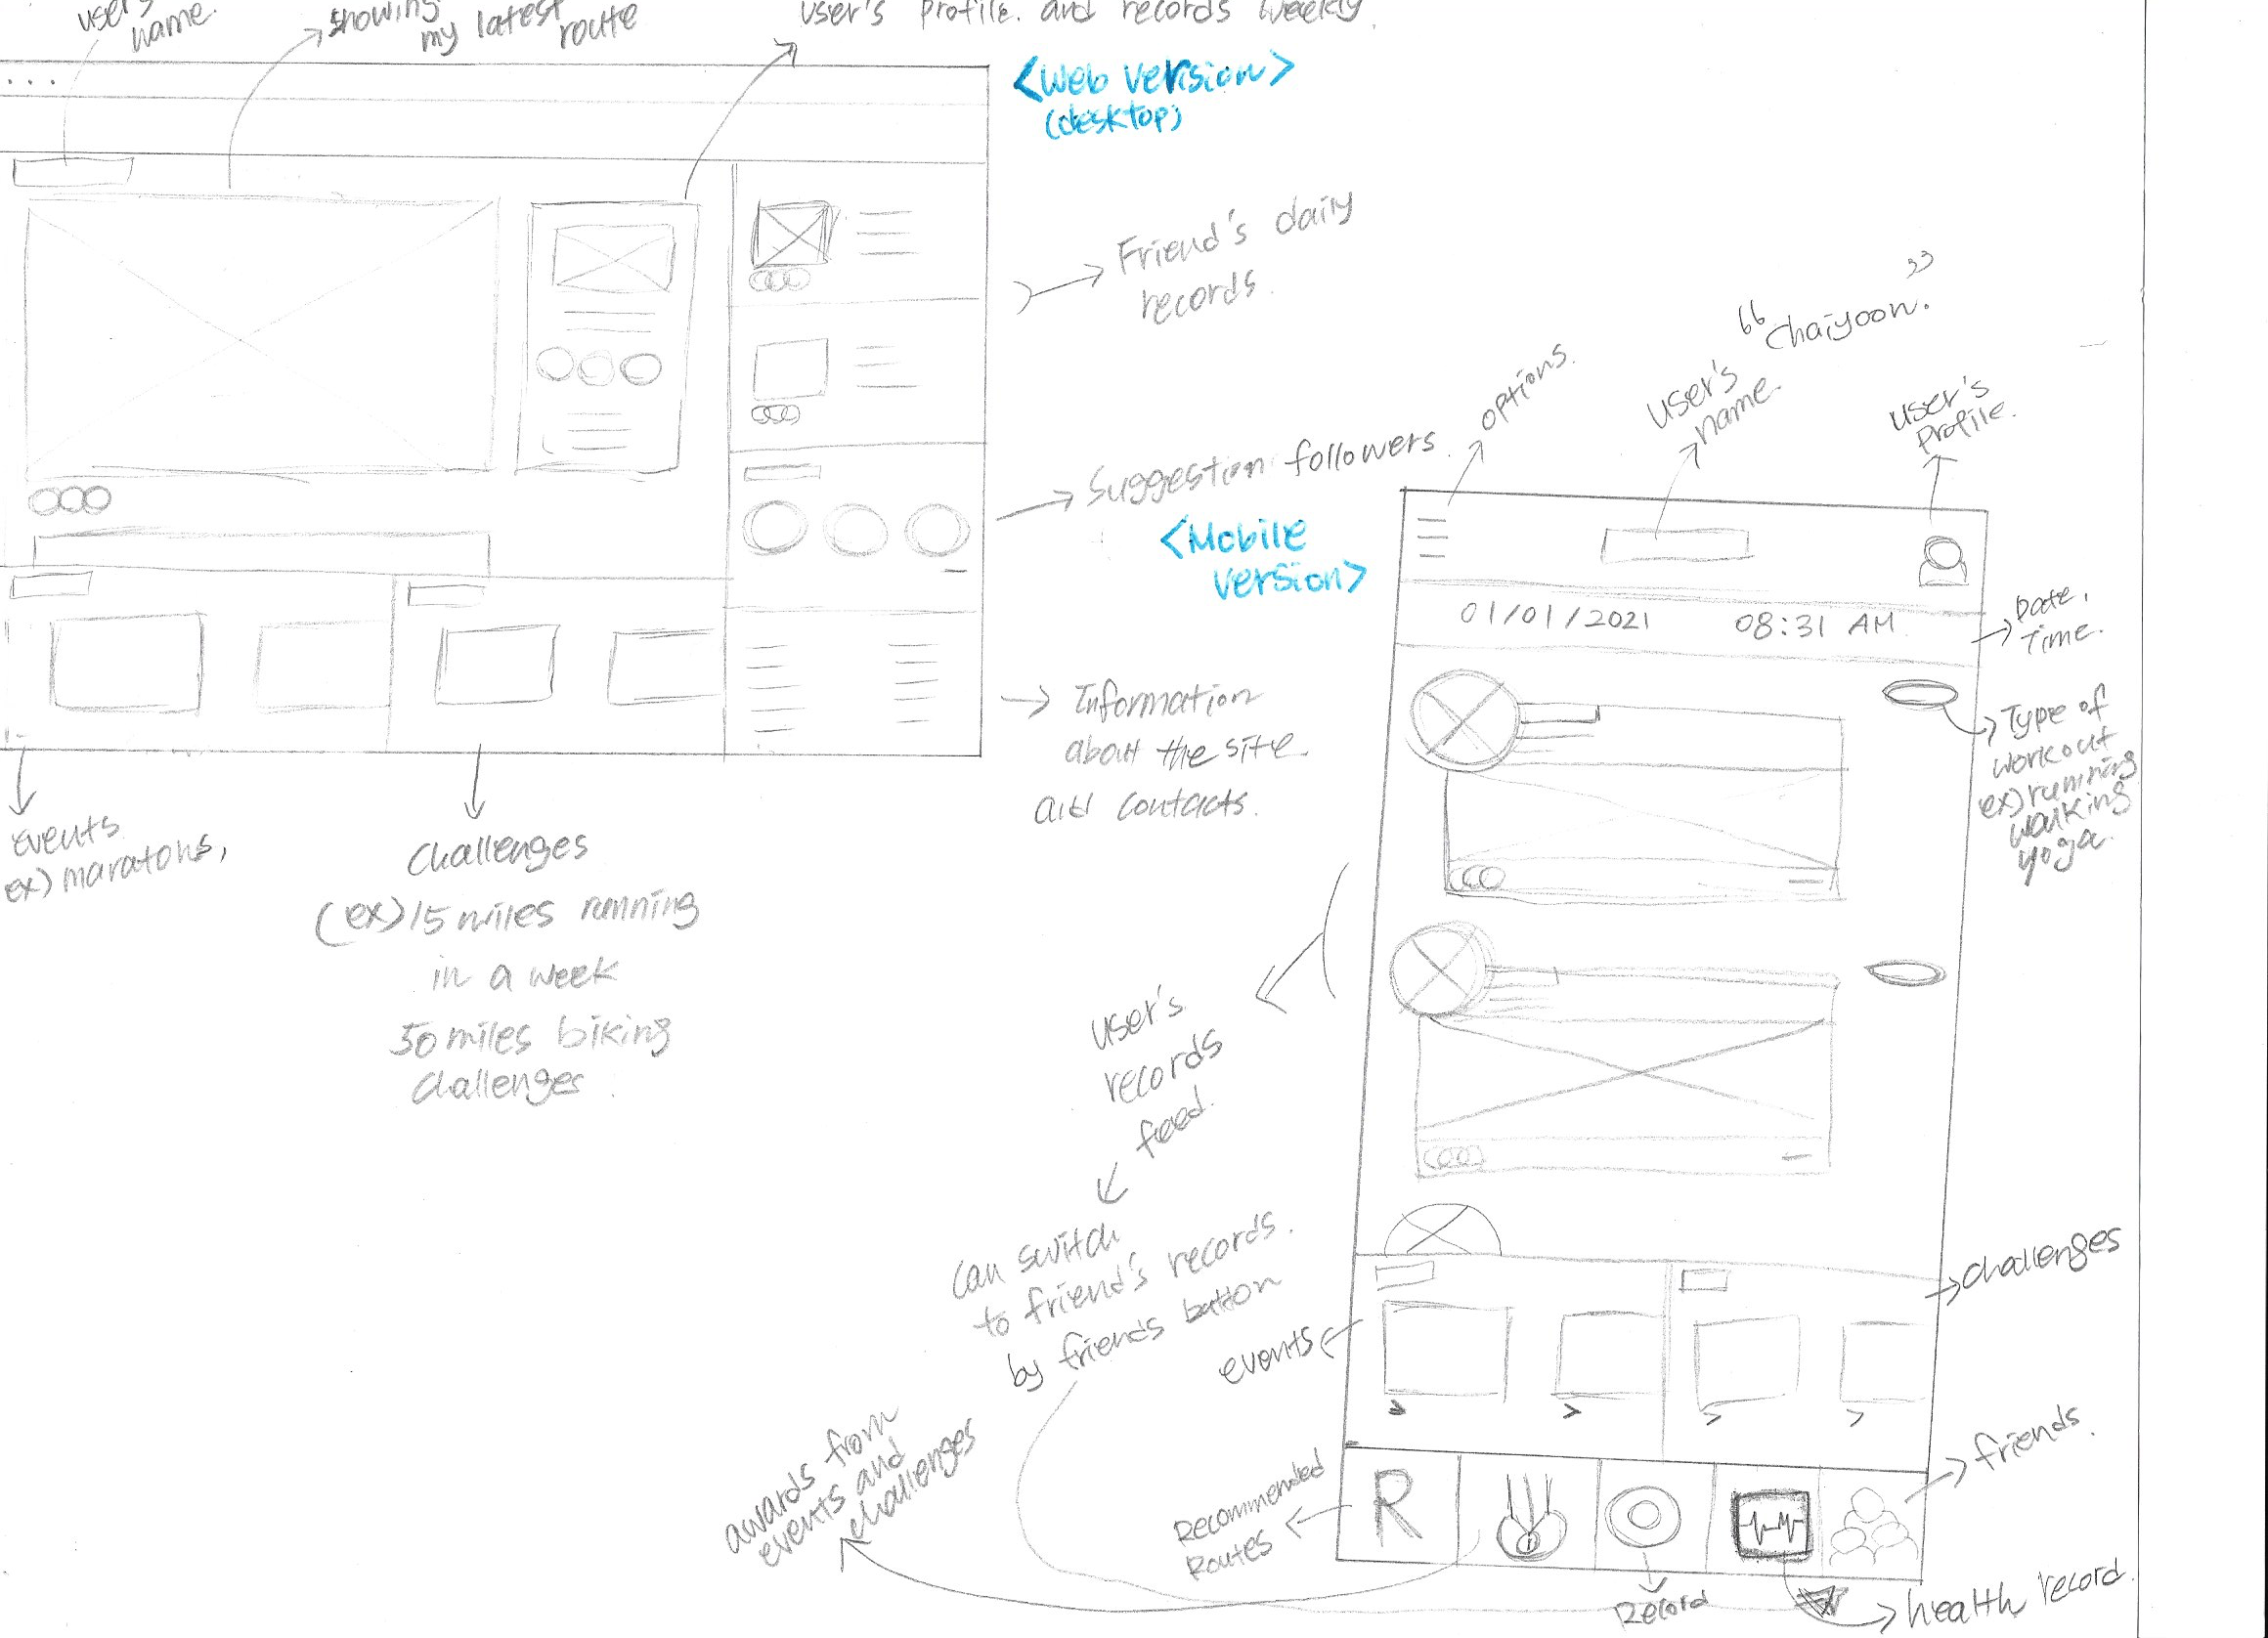 user's
name.
showing
my latest
route
user's profile. and records weekly.
<Web version>
(desktop)
Friend's daily
records.
Suggestion followers.
Information
about the site
and contacts.
Events
ex) maratons,
Challenges
(ex) 15 miles running
in a week
50 miles biking
challenges
<Mobile
version>
options.
user's
name.
"Chaiyoon."
user's
profile.
01/01/2021 08:31 AM
Date,
Time.
Type of
workout
ex) running
walking
yoga.
user's
records
feed.
can switch
to friend's records.
by friends button
challenges
events
friends.
awards from
events and
challenges
Recommended
Routes
R
1
Record
health record.